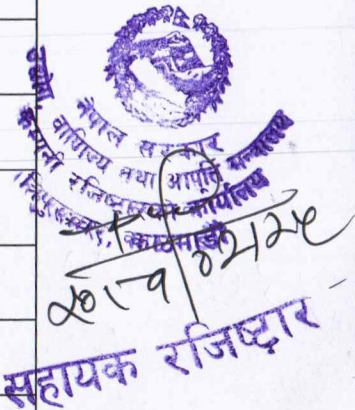 नेपाल सरकार
उद्योग, वाणिज्य तथा आपूर्ति मन्त्रालय
कम्पनी रजिष्ट्रारको कार्यालय
त्रिपुरेश्वर, काठमाडौं
सहायक रजिष्ट्रार